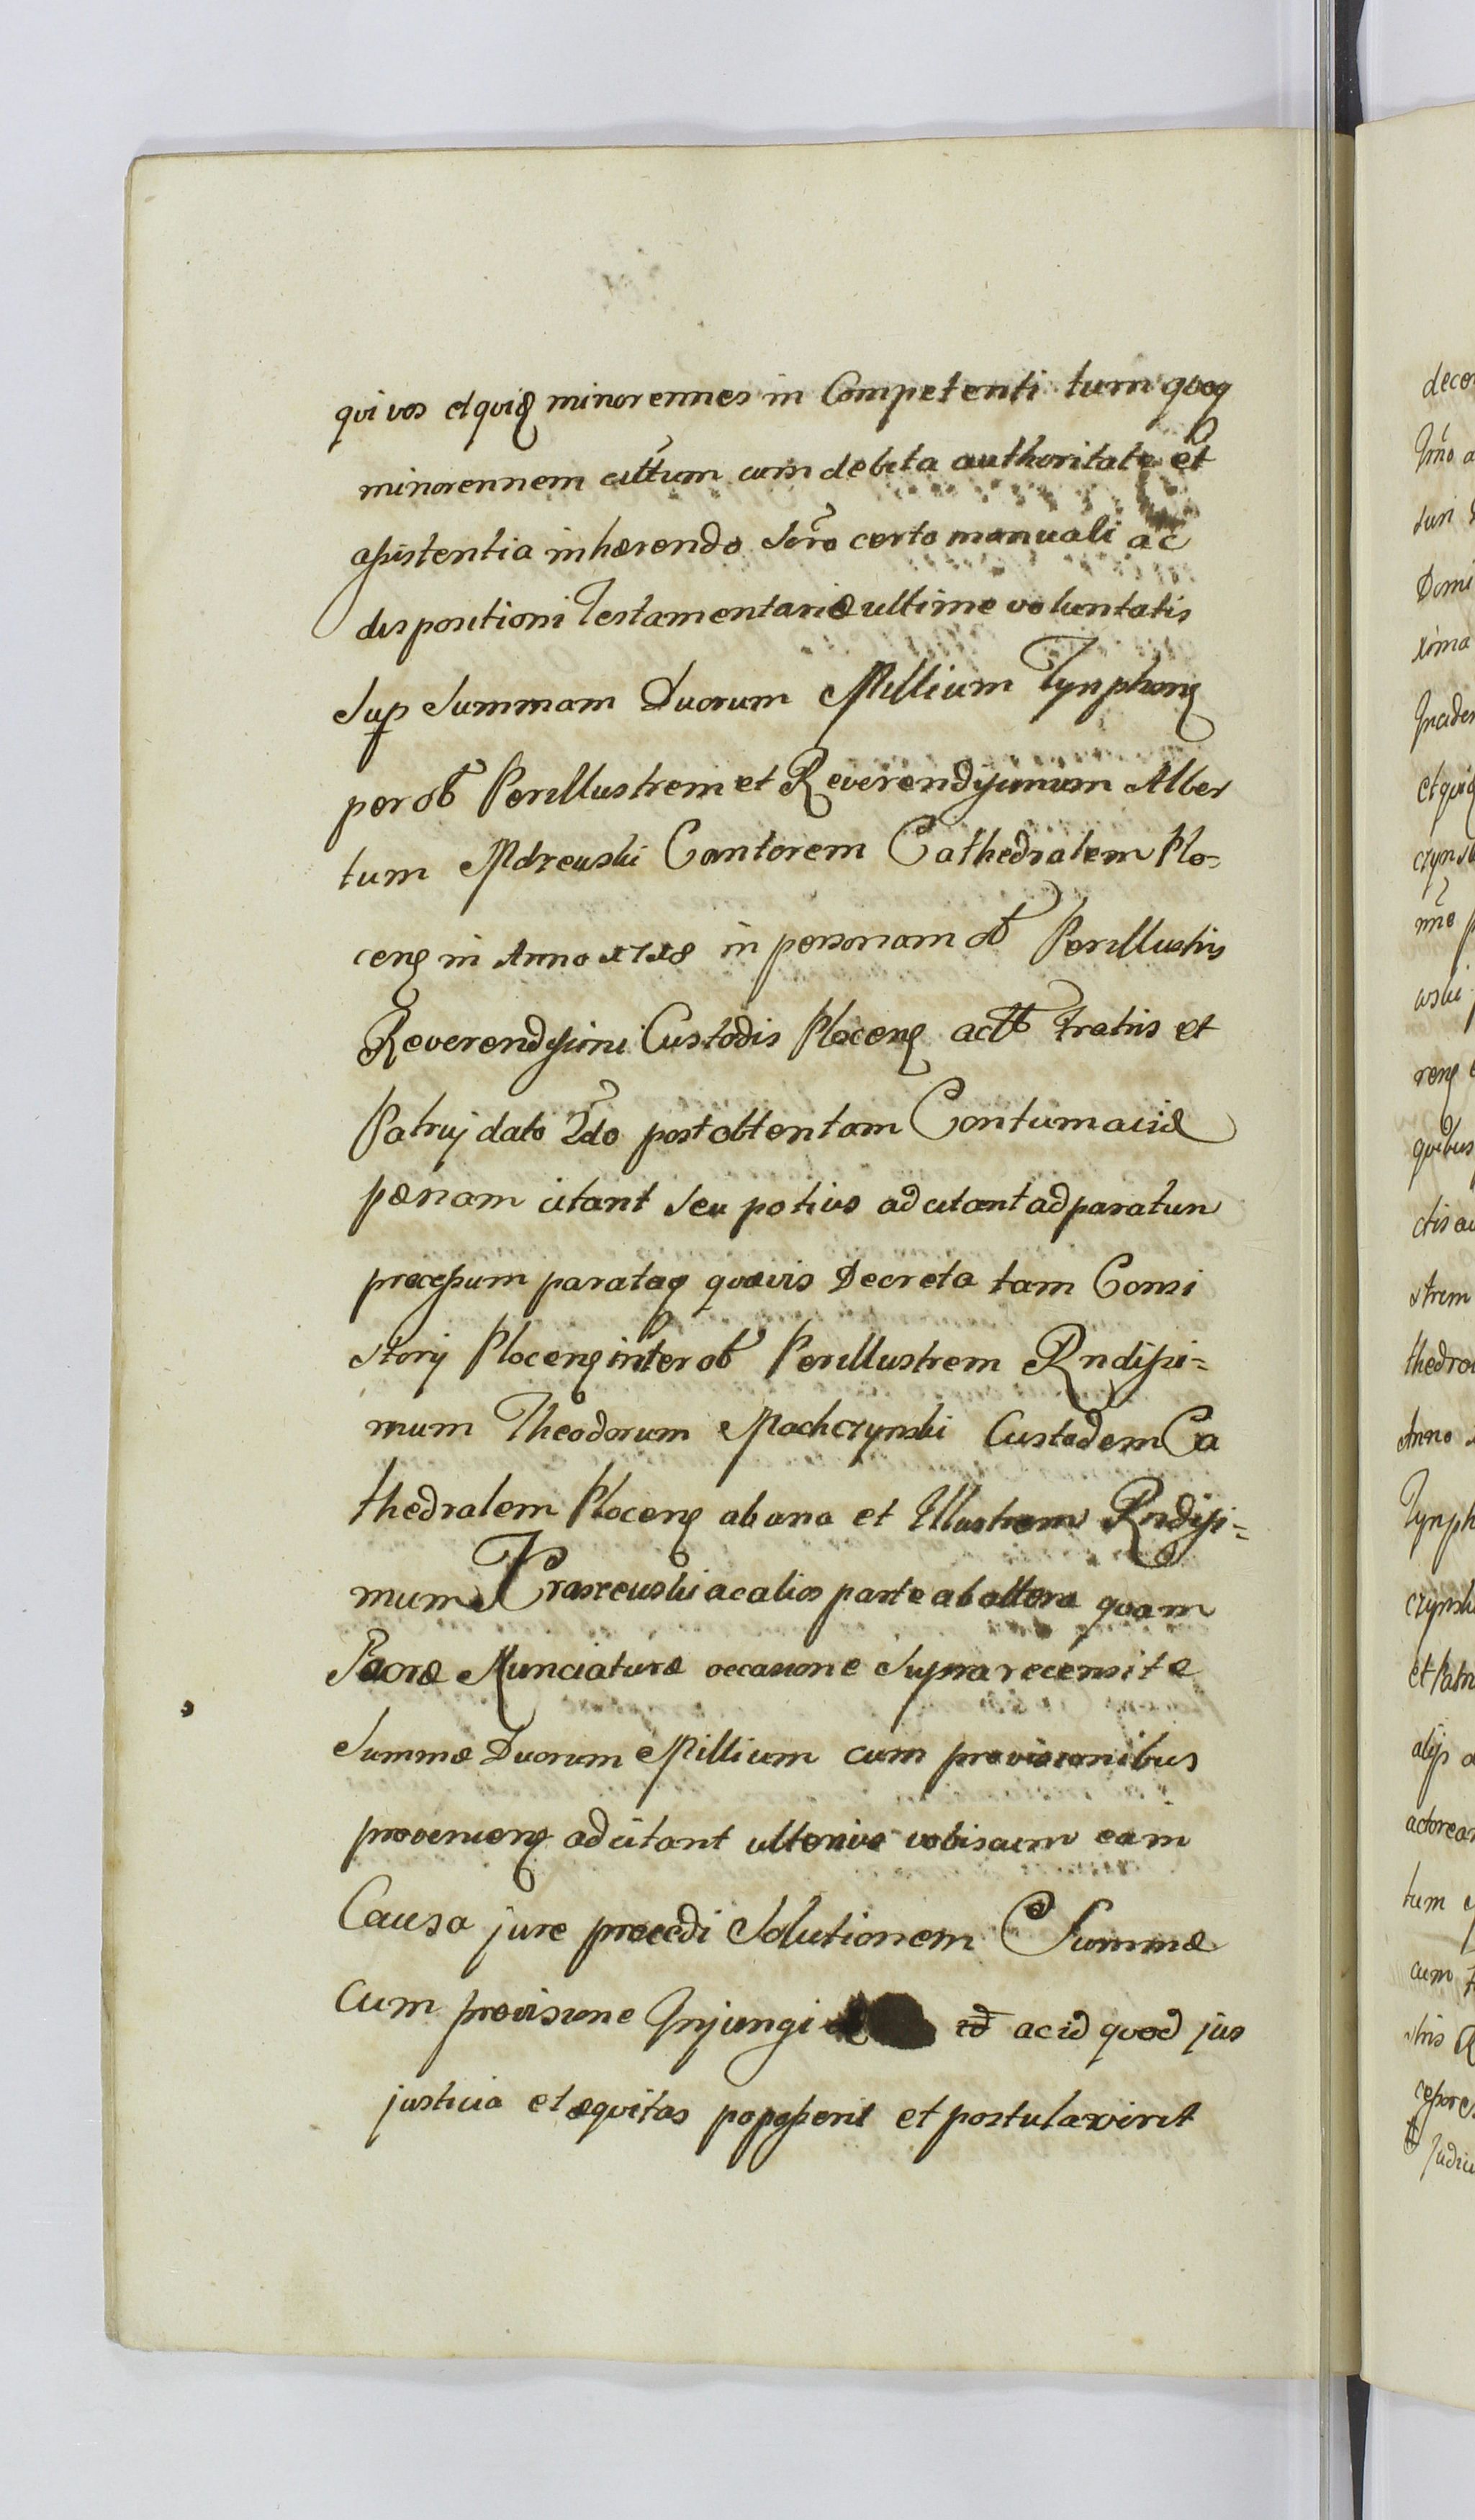 qui vos et quiq minorennes in Competenti tum quoq
minorennem cittum cum debita authoritate et
assistentia inhærendo Scro certo manuali ac
dispositioni Testamentariæ ultime voluntatis
Sup Summam Duorum Millium Tynphonę
per ob Perillustrem et Reverendissimum Alber
tum Mdzewski Cantorem Cathedralem Plo-
ceñ in Anno 1718 in personam ob Perillustris
Reverendissimi Custodis Ploceñ actt fratris et
Patruj dato 2do post obtentam Contumaciæ
pænam citant Seu potius adcitant ad paratum
processum parataq quævis Decreta tam Consi
storij Ploceñ inter ob Perillustrem Rndissi=
mum Theodorum Mochczynski Custodem Ca
thedralem Ploceñ ab ana et Illustrem Rndissi=
mum Kraszewski ac alios parte ab altera quam
Sacræ Nunciaturæ occasione Supra recensitæ
Summæ Duorum Millium cum provisionibus
provenieñ adcitant ulterius vobiscum eam
Causa jure procedi Solutionem Summæ
cum provisione Injungi id ac id quod jus
justicia et æquitas poposserit et postulaverit
decer
Imo a
Domi
xima
et quiq
czynsk
wski
quibus
strem
thedra
Anno
Tynph
czynsk
et Patr
alijs
actorea
tum
cum
Judici